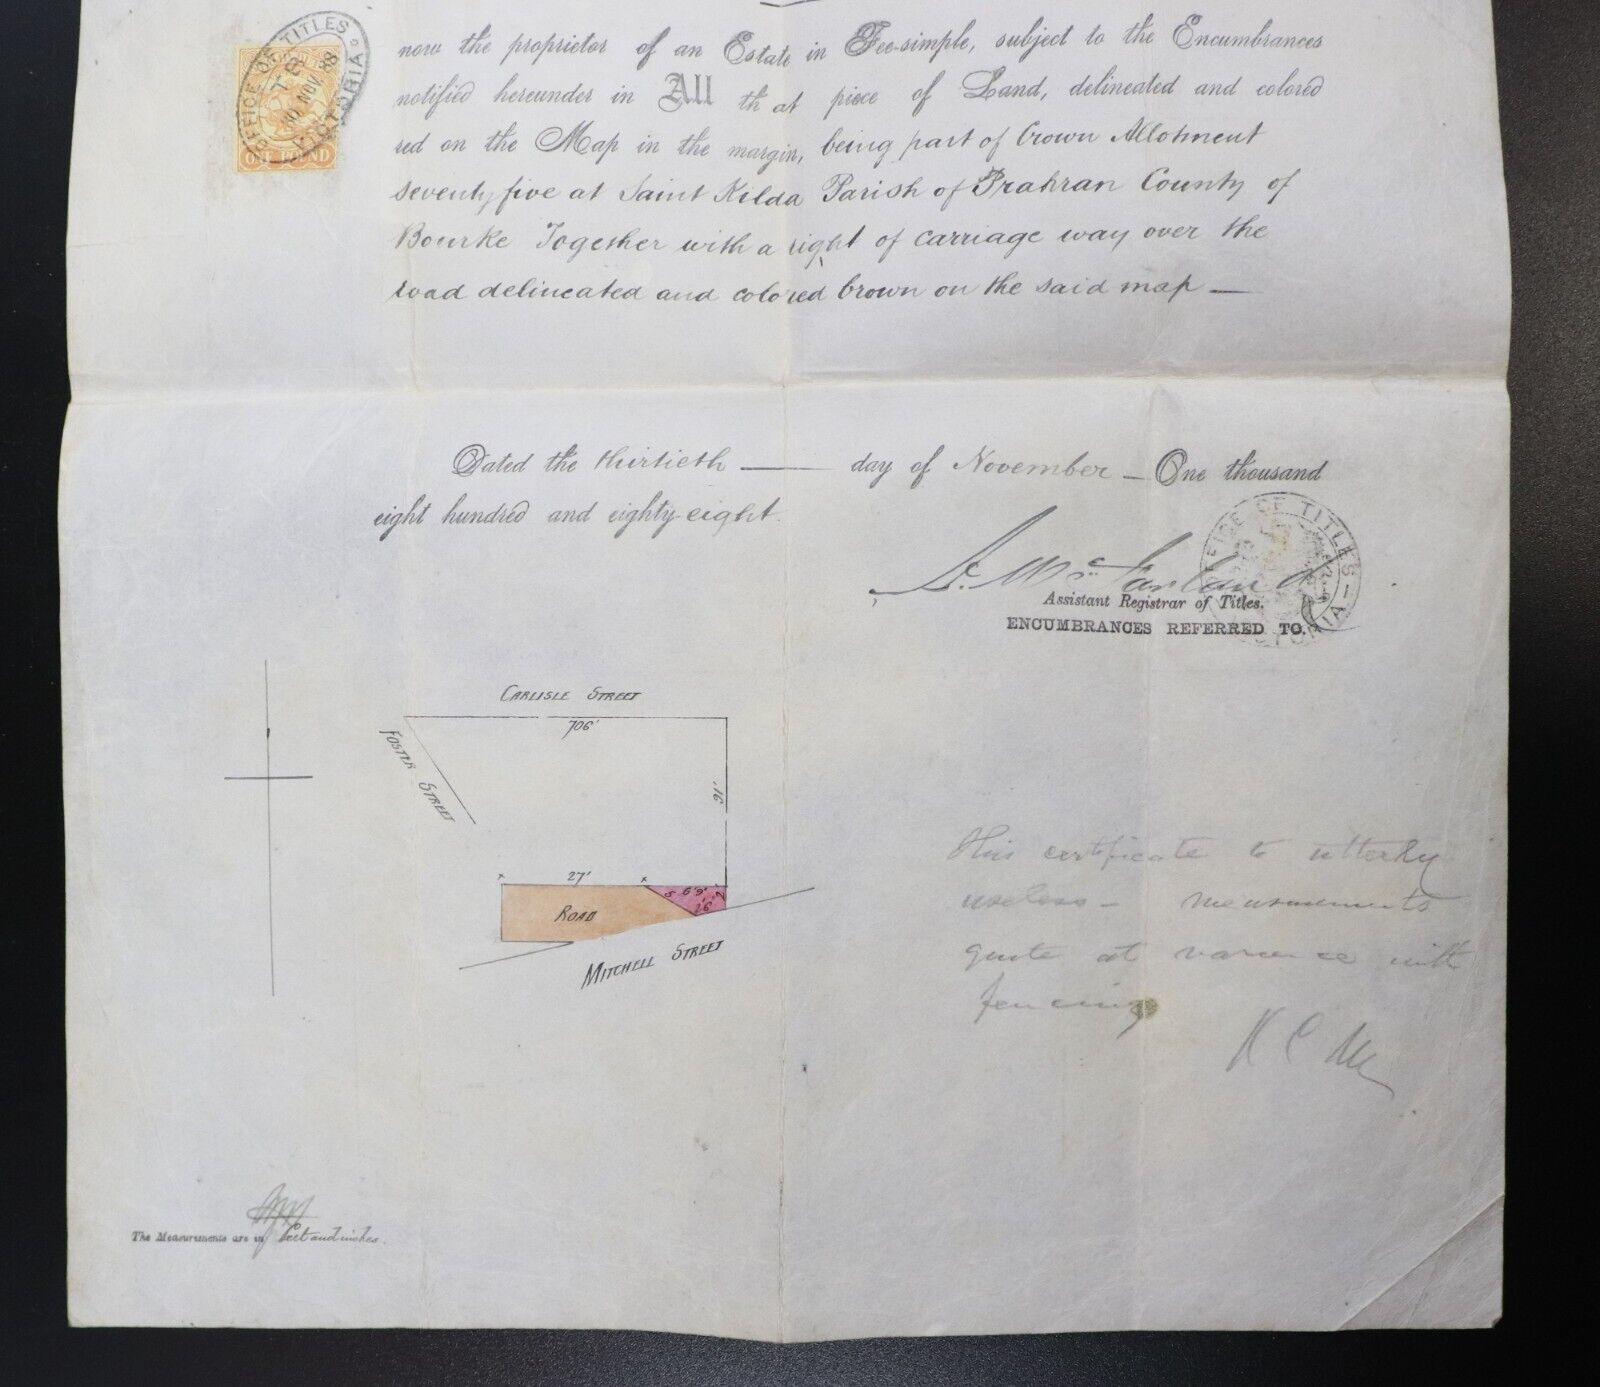 now the proprietor of an Estate in Fee-simple, subject to the Encumbrances
notified hereunder in All that piece of Land, delineated and colored
red on the Map in the margin, being part of Crown Allotment
seventy five at Saint Kilda Parish of Prahran County of
Bourke Together with a right of carriage way over the
road delineated and colored brown on the said map —
OFFICE OF TITLES
VICTORIA
30 NOV 88
ONE POUND
Dated the thirtieth — day of November — One thousand
eight hundred and eighty-eight.
OFFICE OF TITLES
Assistant Registrar of Titles.
ENCUMBRANCES REFERRED TO.
CARLISLE STREET
706'
FOSTER STREET
91'
27'
ROAD
MITCHELL STREET
this certificate is utterly
useless — measurements
quite at variance with
fencing
The Measurements are in feet and inches.